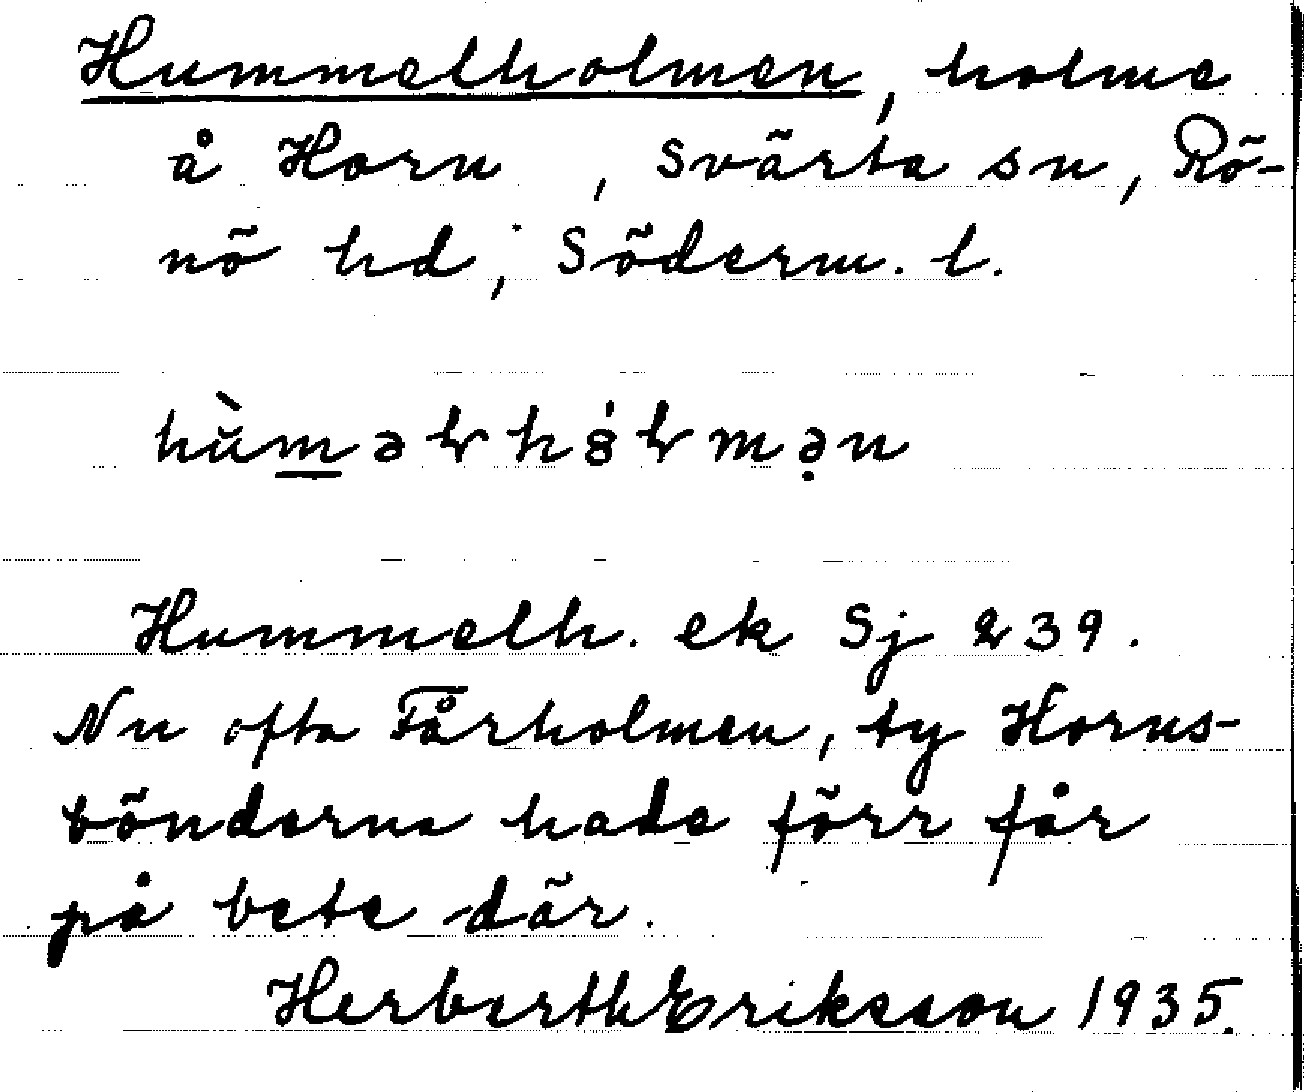 Hummelholmen, holme
å Horn, Svärta sn, Rö-
nö hd, Söderm. l.
Hummelh. ek Sj 239.
Nu ofta Fårholmen, ty Horns-
bönderna hade förr får
på bete där.
Herberth Eriksson 1935.